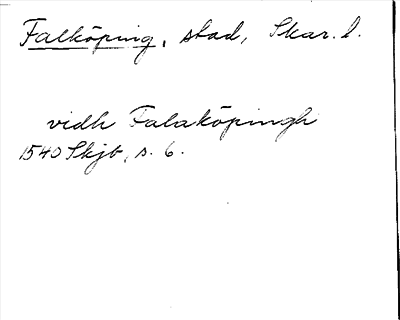 Falköping, stad, Skar. l.
vidh Falaköpingh
1540 Skjb, s. 6.